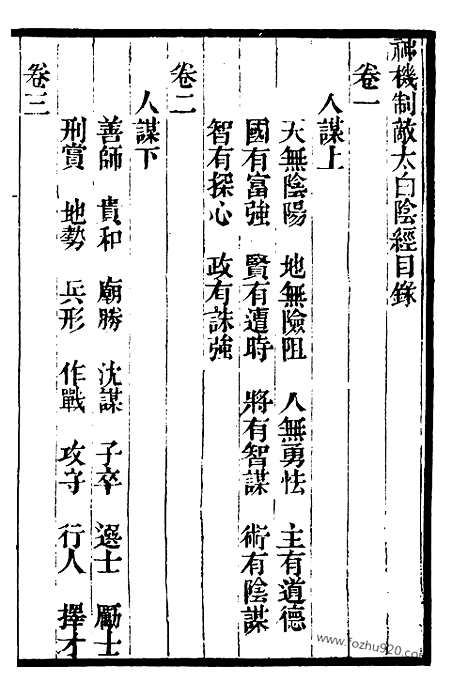 神機制敵太白陰經目錄
卷一
人謀上
天無陰陽 地無險阻 人無勇怯 主有道德
國有富強 賢有遭時 將有智謀 術有陰謀
智有探心 政有誅強
卷二
人謀下
善師 貴和 廟勝 沈謀 子卒 選士 勵士
刑賞 地勢 兵形 作戰 攻守 行人 擇才
卷三
www.fozhu920.com